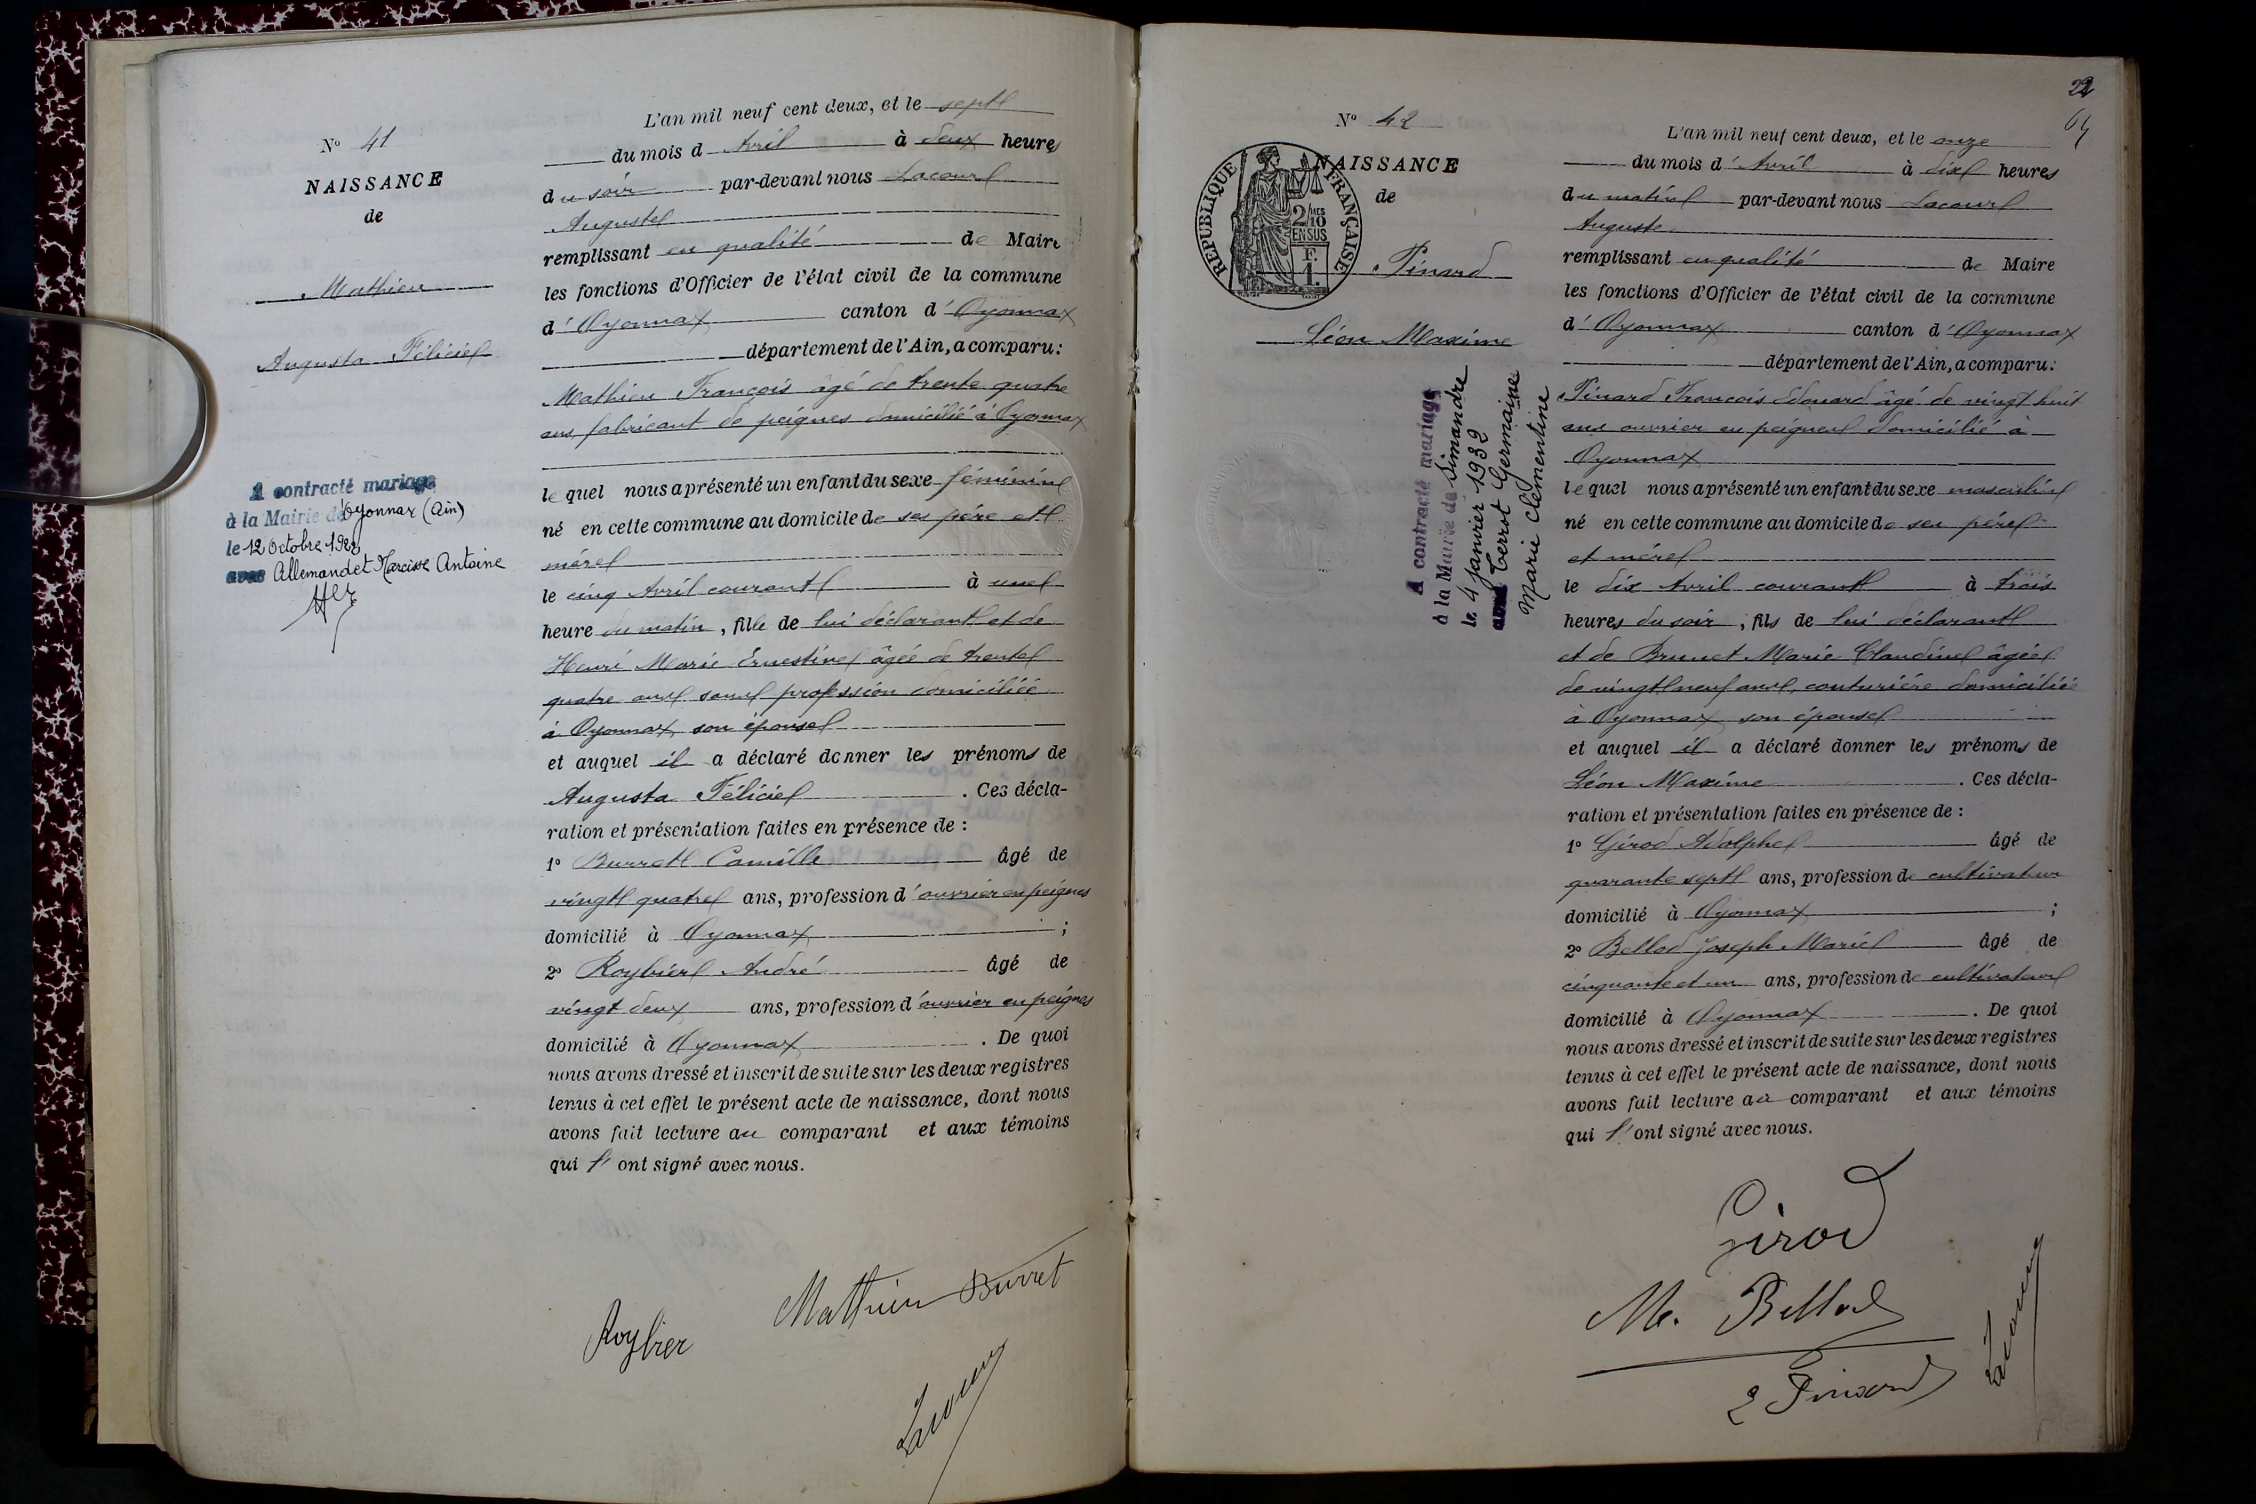 N° 41
NAISSANCE
de
Mathieu
Augusta Félicie
A contracté mariage
à la Mairie de Oyonnax (Ain)
le 12 Octobre 1922
avec Allemandet Narcisse Antoine
L'an mil neuf cent deux, et le sept
du mois d Avril à deux heures
du soir par-devant nous Lacour
Auguste
remplissant en qualité de Maire
les fonctions d'Officier de l'état civil de la commune
d' Oyonnax canton d' Oyonnax
département de l'Ain, a comparu:
Mathieu François âgé de trente quatre
ans, fabricant de peignes domicilié à Oyonnax
lequel nous a présenté un enfant du sexe féminin
né en cette commune au domicile de ses père et
mère
le cinq Avril courant à une
heure du matin, fille de lui déclarant et de
Henri Marie Ernestine âgée de trente
quatre ans sans profession domiciliée
à Oyonnax son épouse
et auquel il a déclaré donner les prénoms de
Augusta Félicie . Ces décla-
ration et présentation faites en présence de :
1° Burret Camille âgé de
vingt quatre ans, profession d'ouvrier en peignes
domicilié à Oyonnax ;
2° Roybier André âgé de
vingt deux ans, profession d'ouvrier en peignes
domicilié à Oyonnax . De quoi
nous avons dressé et inscrit de suite sur les deux registres
tenus à cet effet le présent acte de naissance, dont nous
avons fait lecture au comparant et aux témoins
qui l'ont signé avec nous.
Mathieu Burret
Roybier
Lacour
22
64
N° 42
NAISSANCE
de
REPUBLIQUE FRANÇAISE
2/10 MES
EN SUS
F.
1.
Pinard
Léon Maxime
A contracté mariage
à la Mairie de Simandre
le 4 Janvier 1932
avec Terrot Germaine
Marie Clémentine
L'an mil neuf cent deux, et le onze
du mois d'Avril à dix heures
du matin par-devant nous Lacour
Auguste
remplissant en qualité de Maire
les fonctions d'Officier de l'état civil de la commune
d' Oyonnax canton d' Oyonnax
département de l'Ain, a comparu:
Pinard François Edouard âgé de vingt huit
ans ouvrier en peignes domicilié à
Oyonnax
lequel nous a présenté un enfant du sexe masculin
né en cette commune au domicile de ses père
et mère
le dix Avril courant à trois
heures du soir, fils de lui déclarant
et de Brunet Marie Claudine âgée
de vingt neuf ans, couturière domiciliée
à Oyonnax son épouse
et auquel il a déclaré donner les prénoms de
Léon Maxime . Ces décla-
ration et présentation faites en présence de :
1° Girod Adolphe âgé de
quarante sept ans, profession de cultivateur
domicilié à Oyonnax ;
2° Bellod Joseph Marie âgé de
cinquante et un ans, profession de cultivateur
domicilié à Oyonnax . De quoi
nous avons dressé et inscrit de suite sur les deux registres
tenus à cet effet le présent acte de naissance, dont nous
avons fait lecture au comparant et aux témoins
qui l'ont signé avec nous.
Girod
M. Bellod
E Pinard
Lacour